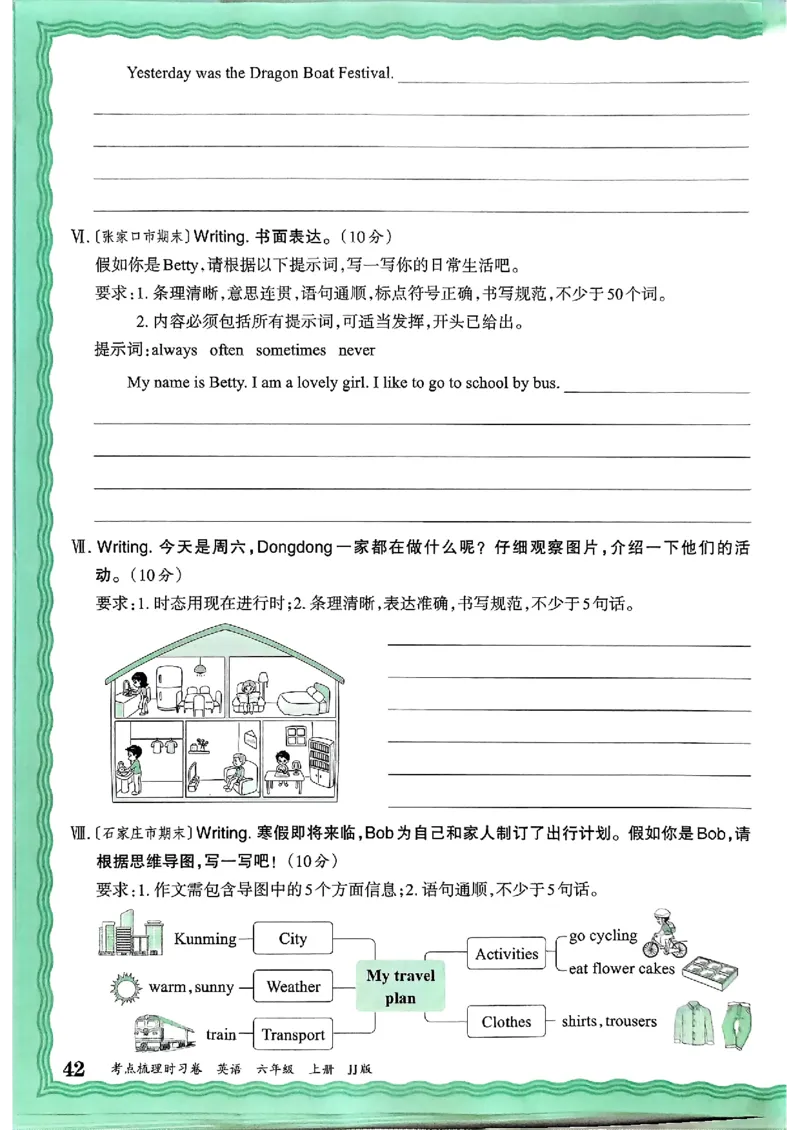 Yesterday was the Dragon Boat Festival.
Ⅵ.〔张家口市期末〕Writing. 书面表达。(10分)
假如你是Betty,请根据以下提示词,写一写你的日常生活吧。
要求:1. 条理清晰,意思连贯,语句通顺,标点符号正确,书写规范,不少于50个词。
2. 内容必须包括所有提示词,可适当发挥,开头已给出。
提示词:always often sometimes never
My name is Betty. I am a lovely girl. I like to go to school by bus.
Ⅶ. Writing. 今天是周六,Dongdong一家都在做什么呢?仔细观察图片,介绍一下他们的活
动。(10分)
要求:1. 时态用现在进行时;2. 条理清晰,表达准确,书写规范,不少于5句话。
Ⅷ.〔石家庄市期末〕Writing. 寒假即将来临,Bob为自己和家人制订了出行计划。假如你是Bob,请
根据思维导图,写一写吧!(10分)
要求:1. 作文需包含导图中的5个方面信息;2. 语句通顺,不少于5句话。
Kunming City
warm, sunny Weather
train Transport
My travel
plan
Activities
go cycling
eat flower cakes
Clothes shirts, trousers
42 考点梳理时习卷 英语 六年级 上册 JJ版